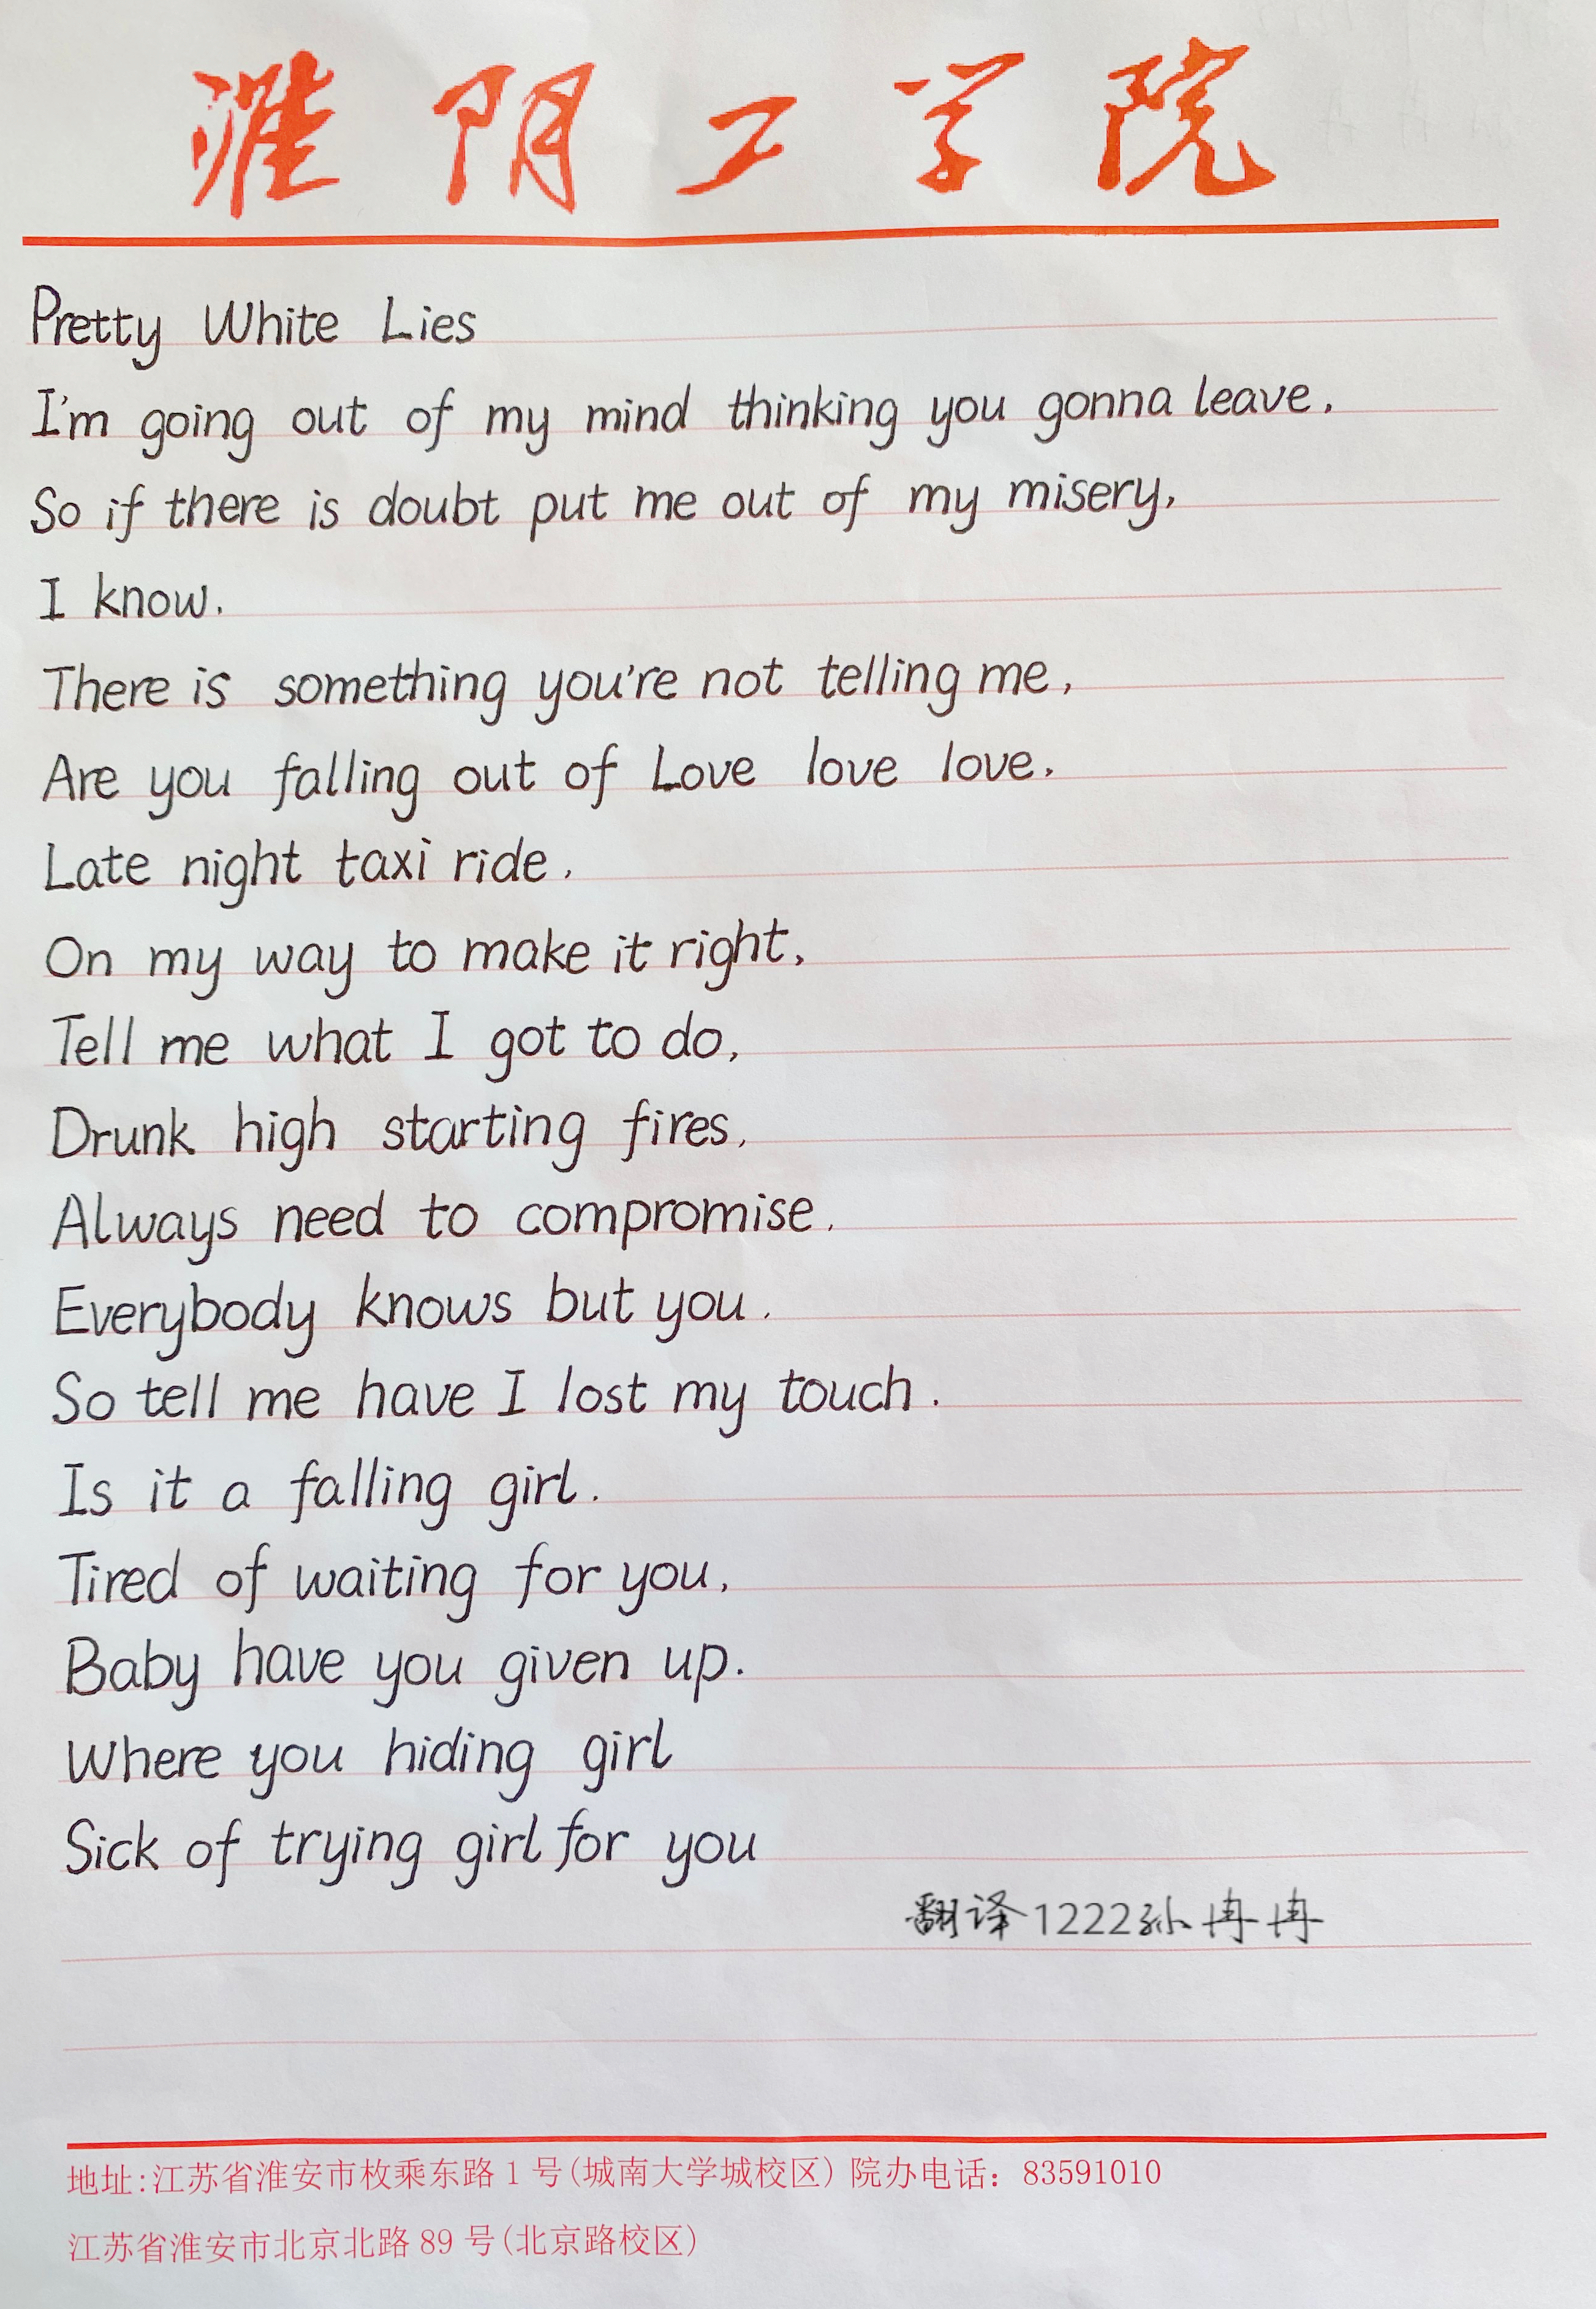 淮阴工学院
Pretty White Lies
I'm going out of my mind thinking you gonna leave,
So if there is doubt put me out of my misery,
I know.
There is something you're not telling me,
Are you falling out of Love love love.
Late night taxi ride,
On my way to make it right,
Tell me what I got to do,
Drunk high starting fires,
Always need to compromise.
Everybody knows but you.
So tell me have I lost my touch.
Is it a falling girl.
Tired of waiting for you,
Baby have you given up.
Where you hiding girl
Sick of trying girl for you
翻译1222孙冉冉
地址:江苏省淮安市枚乘东路1号(城南大学城校区) 院办电话：83591010
江苏省淮安市北京北路89号(北京路校区)